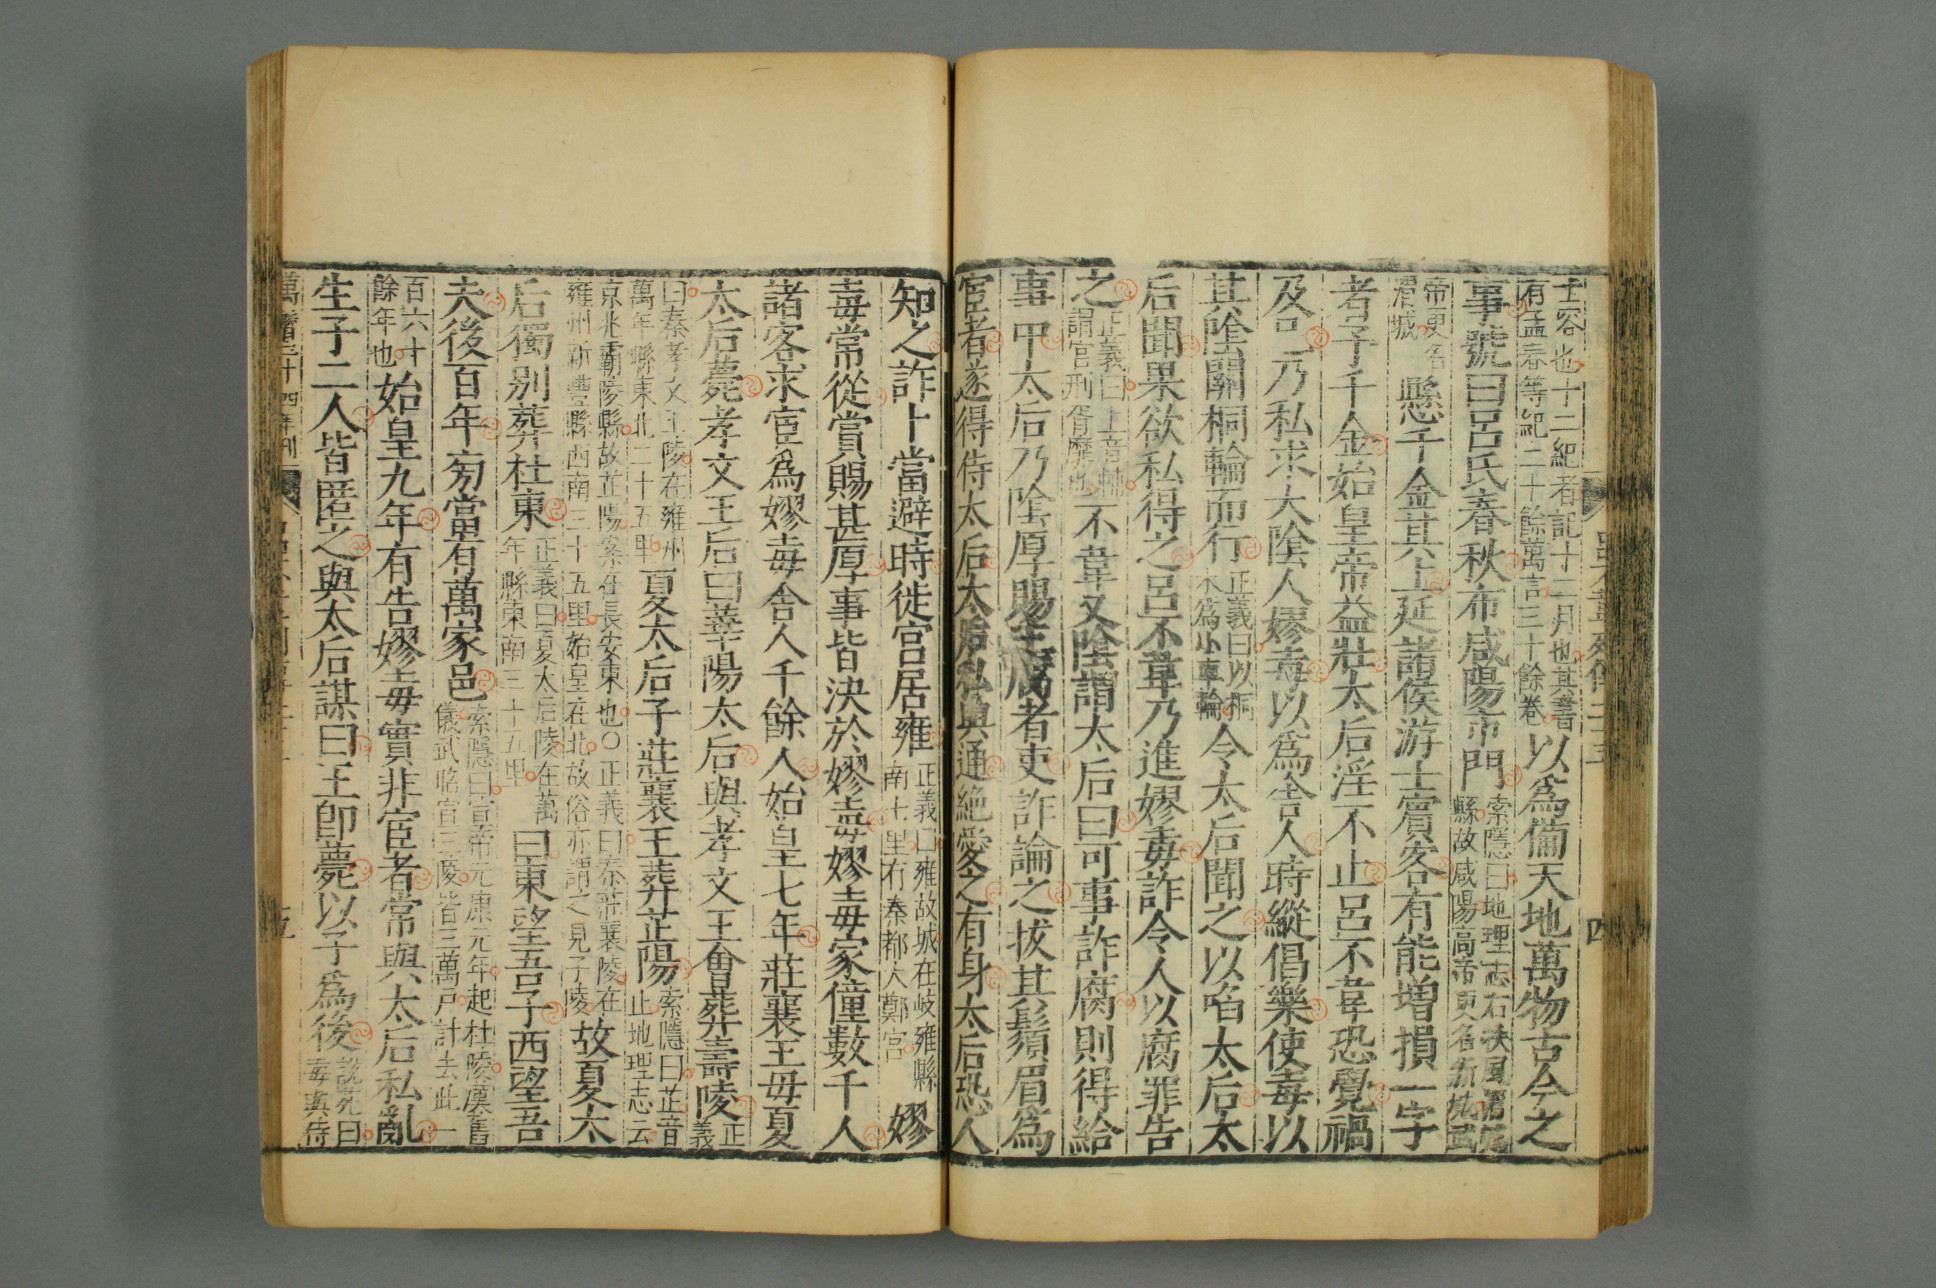 士容也十二紀者記十二月也其書
有孟春等紀二十餘萬言三十餘卷
以爲備天地萬物古今之
事號曰呂氏春秋布咸陽市門
索隱曰地理志右扶風渭城
縣故咸陽高帝更名新城武
帝更名
渭城
懸千金其上延諸侯游士賓客有能增損一字
者予千金始皇帝益壯太后淫不止呂不韋恐覺禍
及己乃私求大陰人嫪毐以爲舍人時縱倡樂使毐以
其陰關桐輪而行
正義曰以桐
木爲小車輪
令太后聞之以啗太后太
后聞果欲私得之呂不韋乃進嫪毐詐令人以腐罪告
之
正義曰上音輔
謂宮刑胥靡也
不韋又陰謂太后曰可事詐腐則得給
事中太后乃陰厚賜主腐者吏詐論之拔其鬚眉爲
宦者遂得侍太后太后私與通絕愛之有身太后恐人
知之詐卜當避時徙宮居雍
正義曰雍故城在岐雍縣
南七里有秦都大鄭宮
嫪
毐常從賞賜甚厚事皆決於嫪毐嫪毐家僮數千人
諸客求宦爲嫪毐舍人千餘人始皇七年莊襄王母夏
太后薨孝文王后曰華陽太后與孝文王會葬壽陵
正
義
曰秦孝文王陵在雍州
萬年縣東北二十五里
夏太后子莊襄王葬芷陽
索隱曰芷音
止地理志云
京兆霸陵縣故芷陽案在長安東也○正義曰秦莊襄陵在
雍州新豐縣西南三十五里始皇在北故俗亦謂之見子陵
故夏太
后獨別葬杜東
正義曰夏太后陵在萬
年縣東南三十五里
曰東望吾子西望吾
夫後百年旁當有萬家邑
索隱曰宣帝元康元年起杜陵漢舊
儀武昭宣三陵皆三萬戶計去此一
百六十
餘年也
始皇九年有告嫪毐實非宦者常與太后私亂
生子二人皆匿之與太后謀曰王卽薨以子爲後
說苑曰
毐與侍